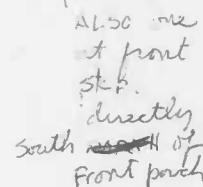 Also one
at front
step.
directly
South of
Front porch